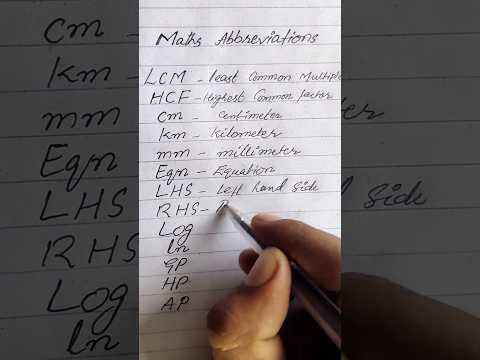 Maths Abbreviations
LCM - Least Common Multiple
HCF - Highest Common factor
cm - Centimeter
km - Kilometer
mm - millimeter
Eqn - Equation
LHS - Left hand Side
RHS -
Log
ln
GP
HP
AP
cm
km
mm
Eqn
LHS
RHS
Log
ln